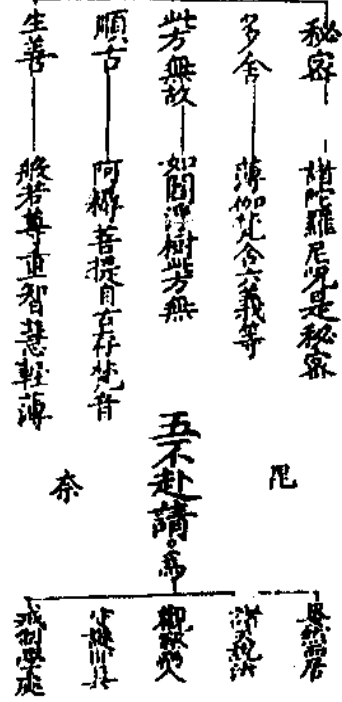 秘密　諸陀羅尼呪是秘密
多含　薄伽梵含六義等
此方無故　如閻浮樹此方無
順古　阿耨菩提自古存梵音
生善　般若尊重智慧輕薄
毘
五不赴請。為
奈
諸天說法
戒制學徒